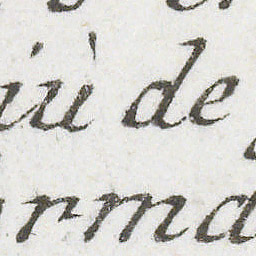 iù de
rma